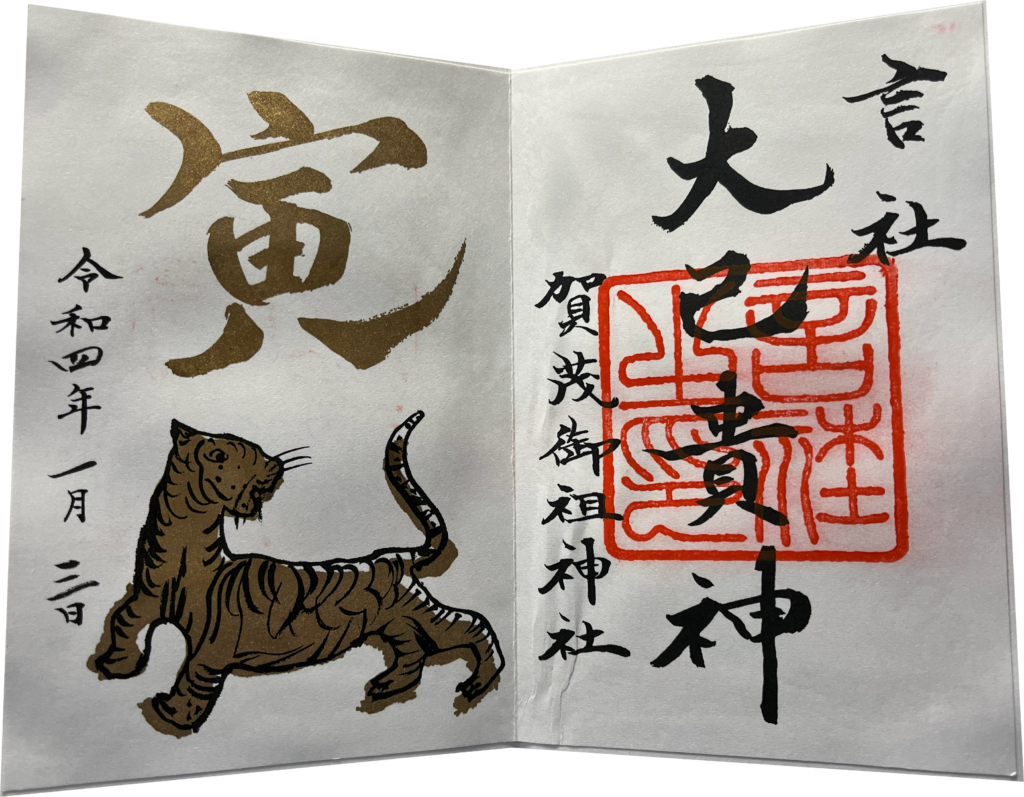 言社
大己貴神
賀茂御祖神社
言社之印
寅
令和四年一月三日